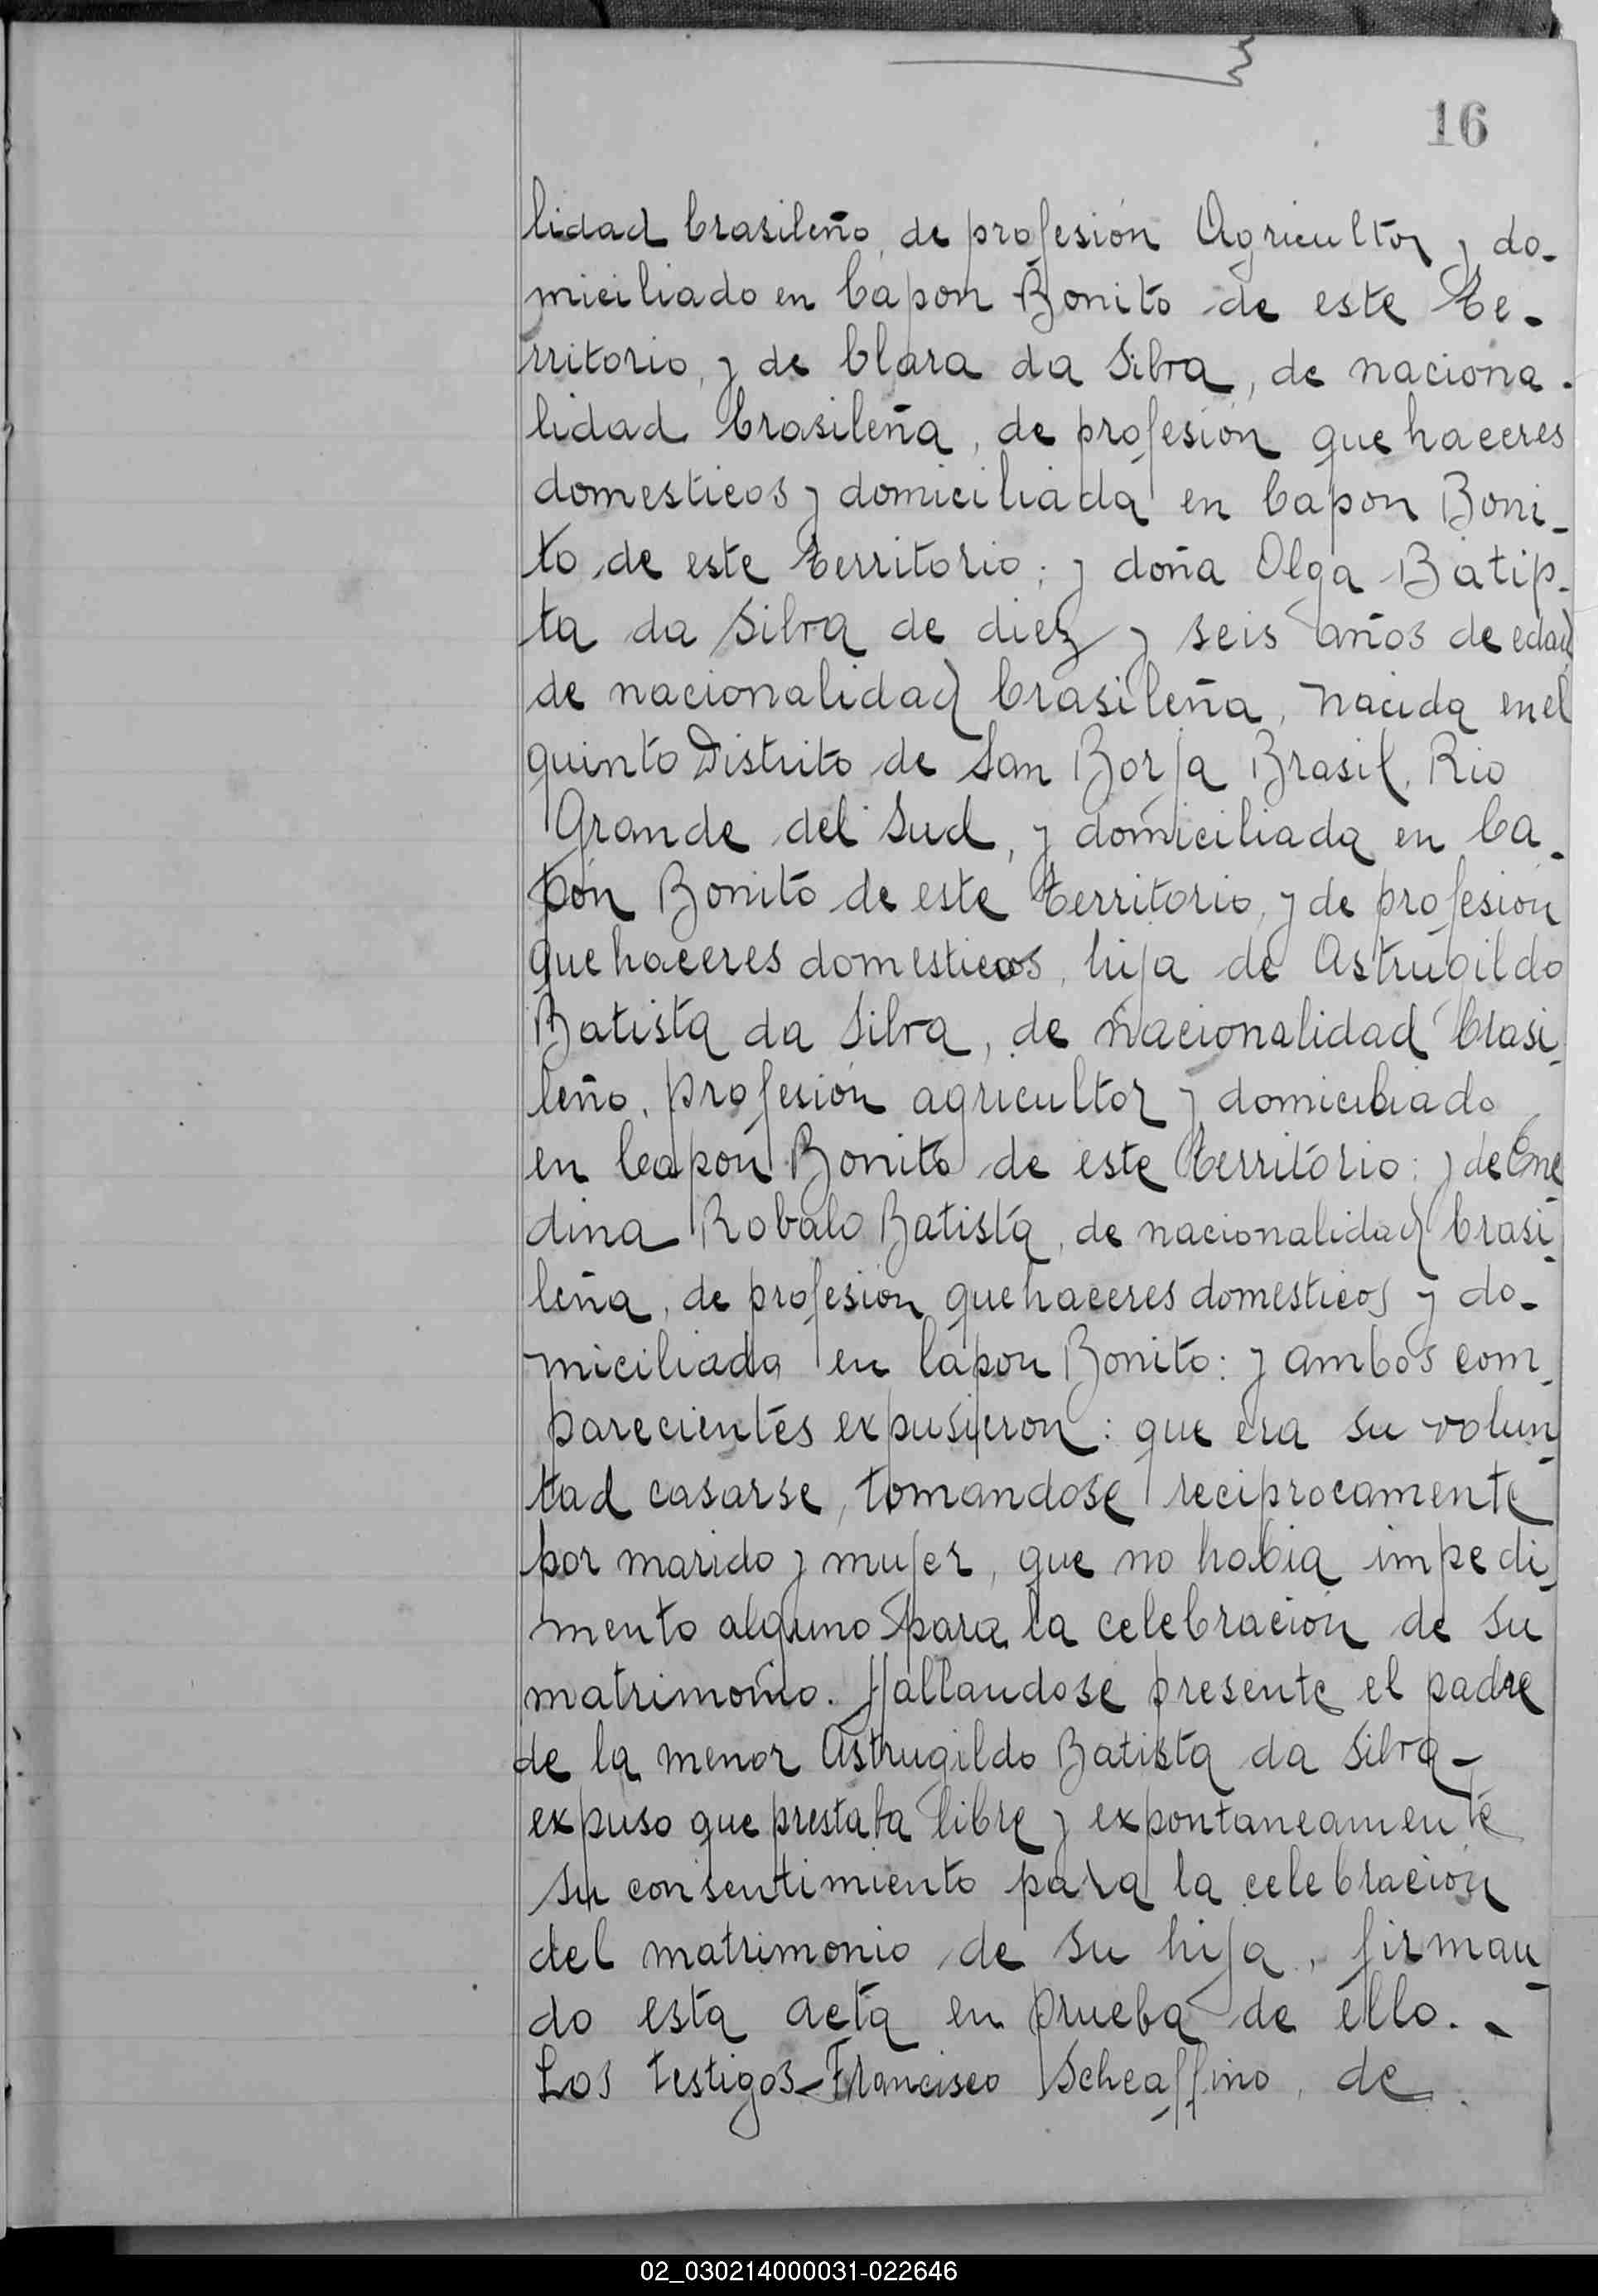 16
lidad brasileño, de profesión Agricultor y do-
miciliado en Capon Bonito de este Te-
rritorio, y de Clara da Silva, de naciona-
lidad brasileña, de profesión que haceres
domesticos y domiciliada en Capon Boni-
to de este territorio; y doña Olga Batip-
ta da Silva de diez y seis años de edad,
de nacionalidad brasileña, nacida en el
quinto Distrito de San Borja Brasil, Rio
Grande del Sud, y domiciliada en Ca-
pón Bonito de este territorio, y de profesion
que haceres domesticos, hija de Astrugildo
Batista da Silva, de nacionalidad brasi-
leño, profesión agricultor y domiciliado
en Capón Bonito de este territorio; y de Ene
dina Robalo Batista, de nacionalidad brasi-
leña, de profesion que haceres domesticos y do-
miciliada en Capon Bonito: y ambos com-
parecientes expusieron: que era su volun-
tad casarse, tomandose reciprocamente
por marido y mujer, que no habia impedi-
mento alguno para la celebración de su
matrimonio. Hallandose presente el padre
de la menor Astrugildo Batista da Silva-
expuso que prestaba libre y expontaneamente
su consentimiento para la celebración
del matrimonio de su hija, firman-
do esta acta en prueba de ello. -
Los testigos-Francisco Scheaffino, de
02_030214000031-022646